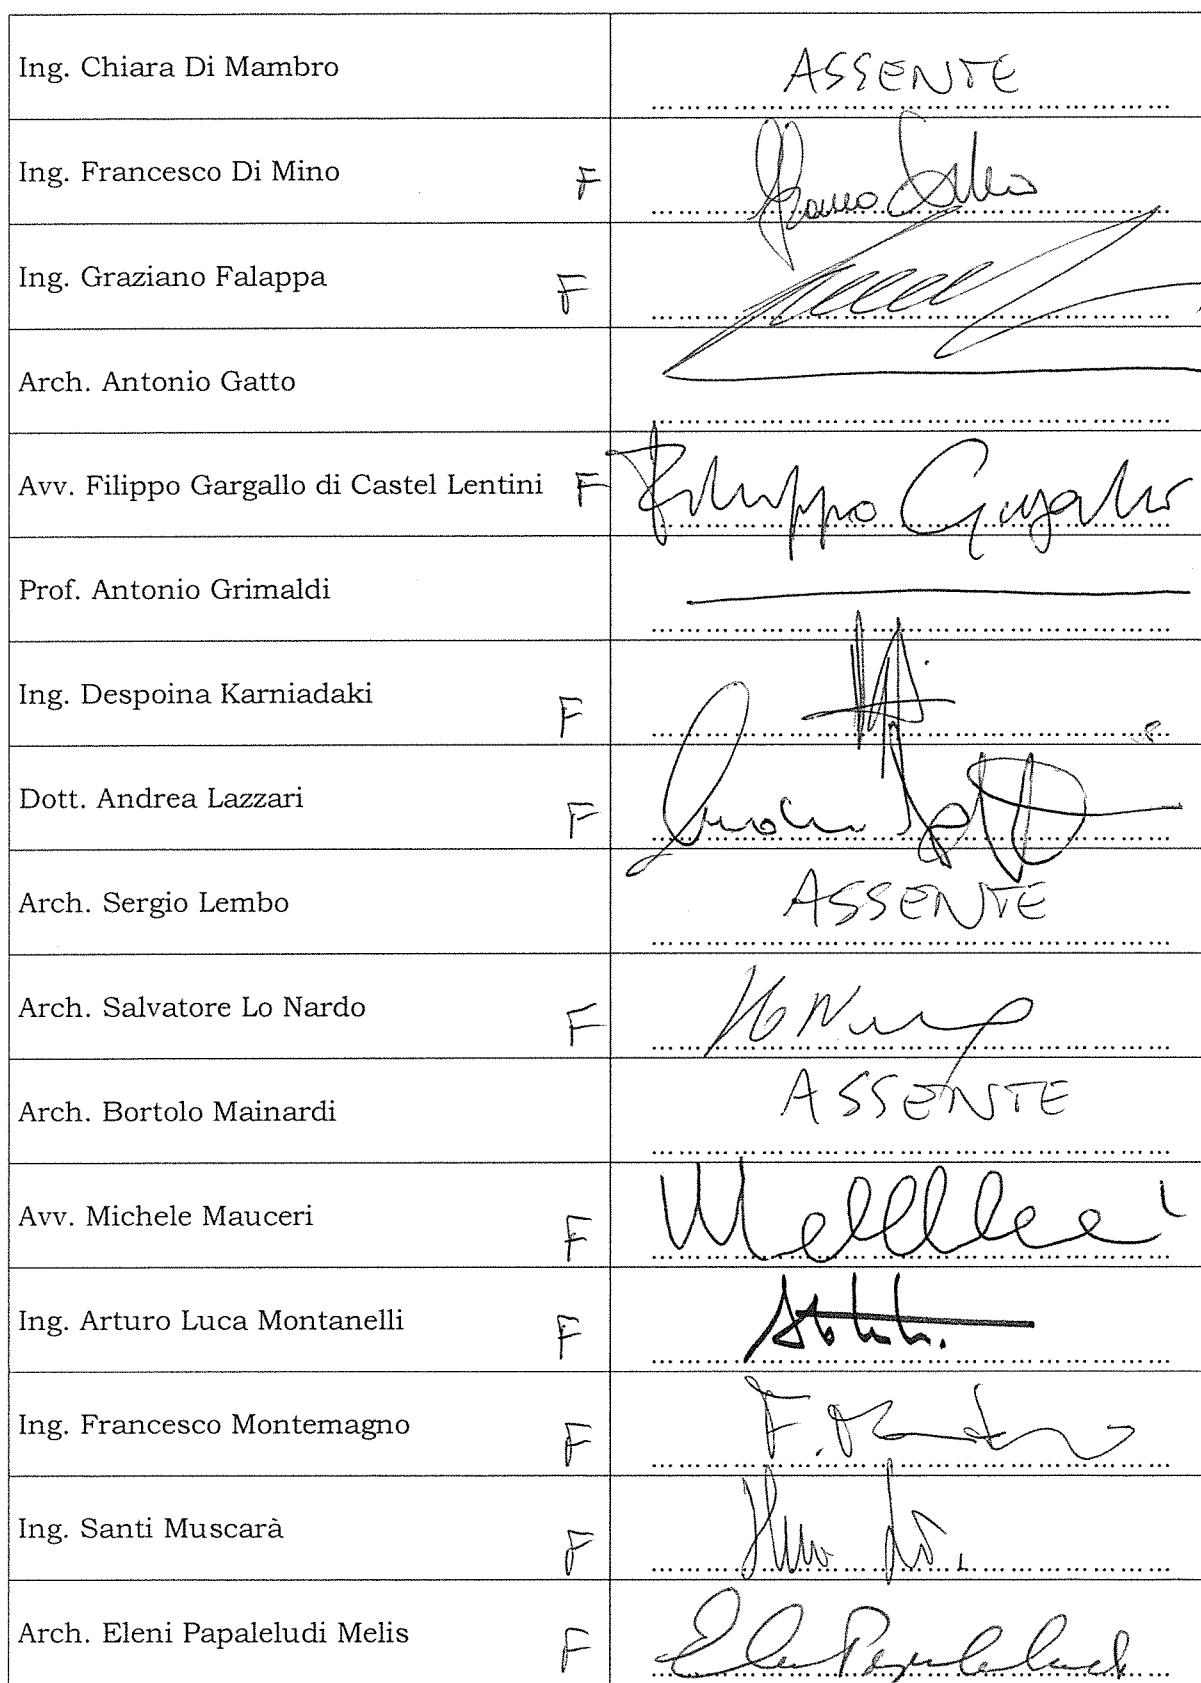 Ing. Chiara Di Mambro ASSENTE
Ing. Francesco Di Mino F
Ing. Graziano Falappa F
Arch. Antonio Gatto
Avv. Filippo Gargallo di Castel Lentini F Filippo Gargallo
Prof. Antonio Grimaldi
Ing. Despoina Karniadaki F
Dott. Andrea Lazzari F
Arch. Sergio Lembo ASSENTE
Arch. Salvatore Lo Nardo F
Arch. Bortolo Mainardi ASSENTE
Avv. Michele Mauceri F
Ing. Arturo Luca Montanelli F
Ing. Francesco Montemagno F
Ing. Santi Muscarà F
Arch. Eleni Papaleludi Melis F